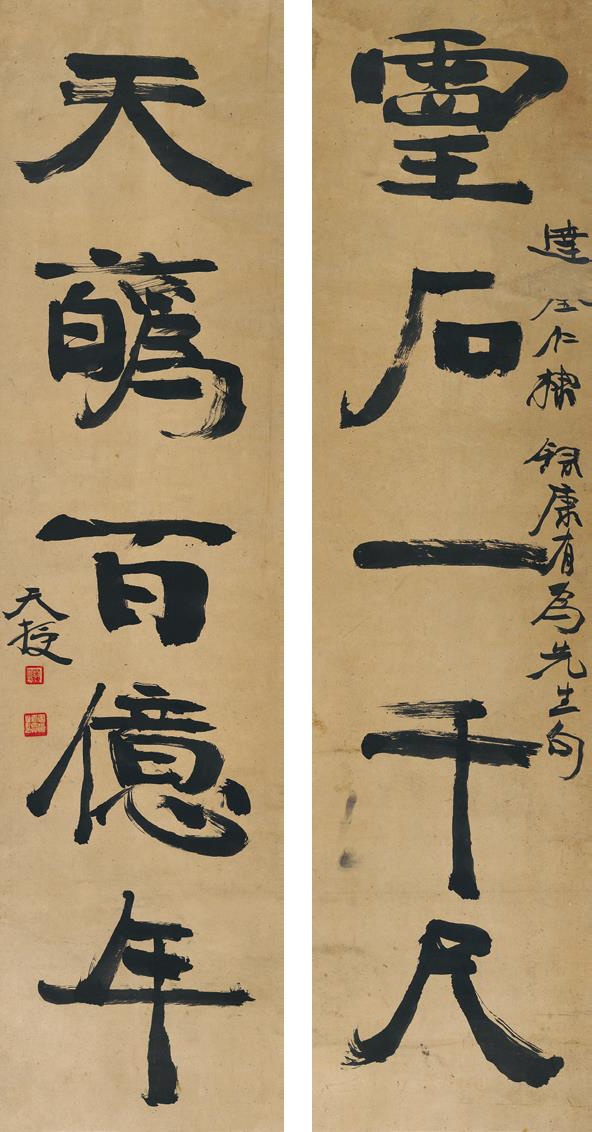 靈石一千尺
達
仁棣 錄康有為先生句
天 百億年
天授